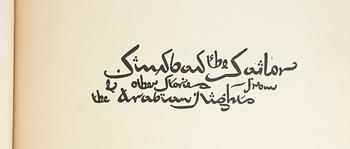 Sindbad the Sailor
& other stories from
the Arabian Nights